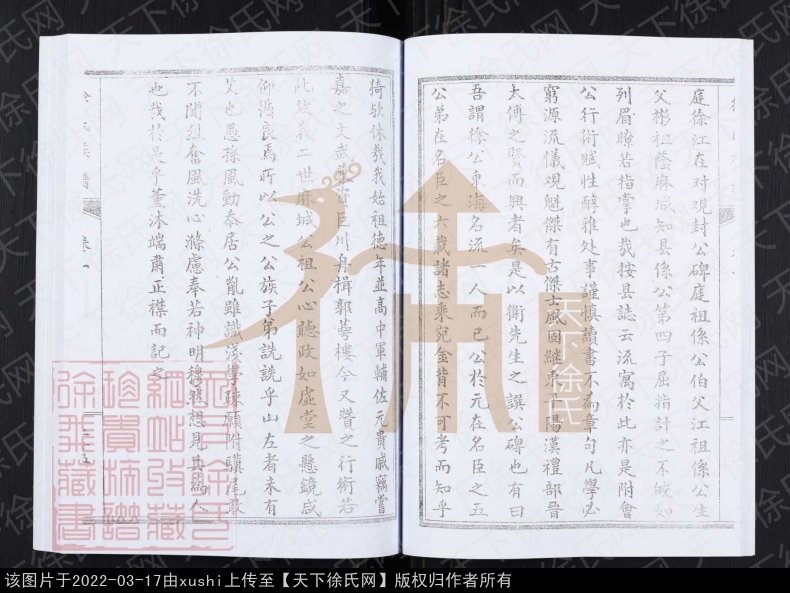 庭條江在對現封公碑庭祖係公伯父江祖係公生
父彬祖蔭麻城知县係公第四子屈指計之不皎如
列眉瞭若指掌也哉按县誌云流寓於此亦是附會
公行術賦性醇雅处事謹慎讀書不為章句凡學必
窮源流儀覌魁傑有古傑士威固継東平陽漢禮部晉
太傅之賢而興者矣是以衛先生之譔公碑也有曰
吾謂徐公東海名流一人而已公於元在名臣之五
公第在名臣之六載諸志乘兒金背不可考而知乎
猗欤休哉我始祖德年並高中軍輔佐元貴戚竊嘗
嘉之文武資巨川舟楫郭萼樓今又贊之行術若
此我二世麻城公祖公心聽政如虚堂之懸鏡咸
仰淸良焉所以公之公族子弟詵詵乎山左者未有
艾也愚孫風動泰居公胤雖識淺學疎願附驥尾敢
不聞烈奮風洗心滌慮奉若神明穆然想見其為人
也哉於是乎董沐端肅正襟而記之
徐氏族譜
卷一
天下徐氏
天下徐氏网
徐氏网站收藏
珍貴族譜
徐飛藏書
该图片于2022-03-17由xushi上传至【天下徐氏网】版权归作者所有